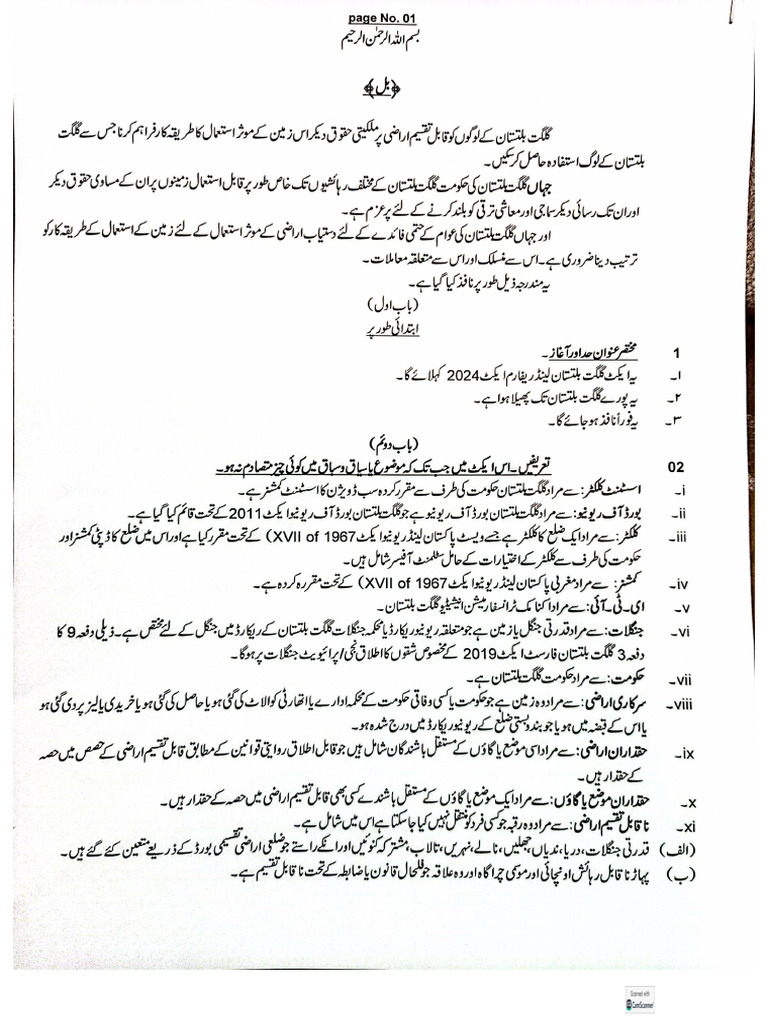 page No. 01
بسم اللہ الرحمٰن الرحیم
﴿بل﴾
گلگت بلتستان کے لوگوں کو قابل تقسیم اراضی پر ملکیتی حقوق دیکر اس زمین کے موثر استعمال کا طریقہ کار فراہم کرنا جس سے گلگت
بلتستان کے لوگ استفادہ حاصل کر سکیں۔
جہاں گلگت بلتستان کی حکومت گلگت بلتستان کے مختلف رہائشیوں تک خاص طور پر قابل استعمال زمینوں پر ان کے مساوی حقوق دیکر
اور ان تک رسائی دیکر سماجی اور معاشی ترقی کو بلند کرنے کے لئے پر عزم ہے۔
اور جہاں گلگت بلتستان کی عوام کے حتمی فائدے کے لئے دستیاب اراضی کے موثر استعمال کے لئے زمین کے استعمال کے طریقہ کار کو
ترتیب دینا ضروری ہے۔ اس سے منسلک اور اس سے متعلقہ معاملات۔
یہ مندرجہ ذیل طور پر نافذ کیا گیا ہے۔
(باب اول)
ابتدائی طور پر
1 مختصر عنوان حد اور آغاز۔
۱۔ یہ ایکٹ گلگت بلتستان لینڈ ریفارم ایکٹ 2024 کہلائے گا۔
۲۔ یہ پورے گلگت بلتستان تک پھیلا ہوا ہے۔
۳۔ یہ فوراً نافذ ہو جائے گا۔
(باب دوئم)
02 تعریفیں۔ اس ایکٹ میں جب تک کہ موضوع یا سیاق و سباق میں کوئی چیز متصادم نہ ہو۔
i۔ اسسٹنٹ کلکٹر: سے مراد گلگت بلتستان حکومت کی طرف سے مقرر کردہ سب ڈویژن کا اسسٹنٹ کمشنر ہے۔
ii۔ بورڈ آف ریونیو: سے مراد گلگت بلتستان بورڈ آف ریونیو ہے جو گلگت بلتستان بورڈ آف ریونیو ایکٹ 2011 کے تحت قائم کیا گیا ہے۔
iii۔ کلکٹر: سے مراد ایک ضلع کا کلکٹر ہے جسے ویسٹ پاکستان لینڈ ریونیو ایکٹ XVII of 1967) کے تحت مقرر کیا ہے اور اس میں ضلع کا ڈپٹی کمشنر اور
حکومت کی طرف سے کلکٹر کے اختیارات کے حامل سٹلمنٹ آفیسر شامل ہیں۔
iv۔ کمشنر: سے مراد مغربی پاکستان لینڈ ریونیو ایکٹ XVII of 1967) کے تحت مقررہ کردہ ہے۔
v۔ ای۔ٹی۔آئی: سے مراد اکنامک ٹرانسفارمیشن انیشیٹو گلگت بلتستان۔
vi۔ جنگلات: سے مراد قدرتی جنگل یا زمین ہے جو متعلقہ ریونیو ریکارڈ یا محکمہ جنگلات گلگت بلتستان کے ریکارڈ میں جنگل کے لئے مختص ہے۔ ذیلی دفعہ 9 کا
دفعہ 3 گلگت بلتستان فارسٹ ایکٹ 2019 کے مخصوص شقوں کا اطلاق نجی/پرائیویٹ جنگلات پر ہوگا۔
vii۔ حکومت: سے مراد حکومت گلگت بلتستان ہے۔
viii۔ سرکاری اراضی: سے مراد وہ زمین ہے جو حکومت یا کسی وفاقی حکومت کے محکمہ ادارے یا اتھارٹی کو الاٹ کی گئی ہو یا حاصل کی گئی ہو یا خریدی یا لیز پر دی گئی ہو
یا اس کے قبضہ میں ہو یا جو بندوبستی ضلع کے ریونیو ریکارڈ میں درج شدہ ہو۔
ix۔ حقداران اراضی: سے مراد اسی موضع یا گاؤں کے مستقل باشندگان شامل ہیں جو قابل اطلاق روایتی قوانین کے مطابق قابل تقسیم اراضی کے حصص میں حصہ
کے حقدار ہیں۔
x۔ حقداران موضع یا گاؤں: سے مراد ایک موضع یا گاؤں کے مستقل باشندے کسی بھی قابل تقسیم اراضی میں حصہ کے حقدار ہیں۔
xi۔ ناقابل تقسیم اراضی: سے مراد وہ رقبہ جو کسی فرد کو منتقل نہیں کیا جا سکتا ہے اس میں شامل ہے۔
(الف) قدرتی جنگلات، دریا، ندیاں، جھلیں، نالے، نہریں، تالاب، مشترکہ کنوئیں اور انکے راستے جو ضلعی اراضی تقسیمی بورڈ کے ذریعے متعین کئے گئے ہیں۔
(ب) پہاڑ ناقابل رہائش اونچائی اور موسمی چراگاہ اور وہ علاقہ جو فلحال قانون یا ضابطہ کے تحت ناقابل تقسیم ہے۔
Scanned with
CamScanner